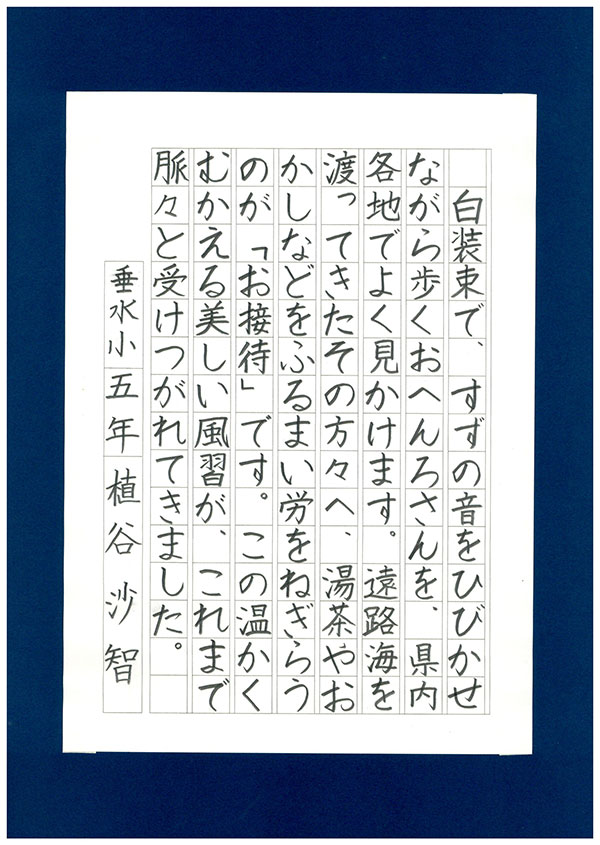 白装束で、すずの音をひびかせ
ながら歩くおへんろさんを、県内
各地でよく見かけます。遠路海を
渡ってきたその方々へ、湯茶やお
かしなどをふるまい労をねぎらう
のが「お接待」です。この温かく
むかえる美しい風習が、これまで
脈々と受けつがれてきました。
垂水小五年植谷沙智